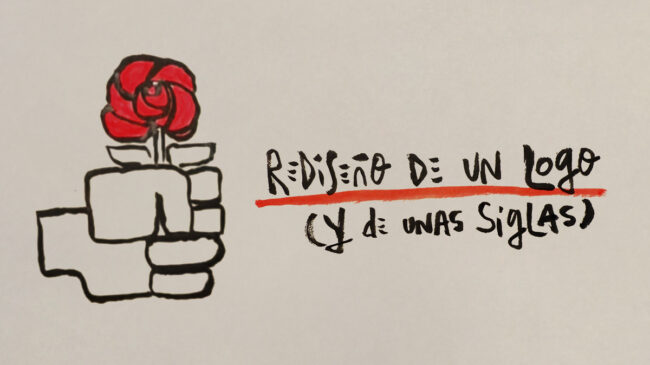 REDISEÑO DE UN LOGO
(Y DE UNAS SIGLAS)